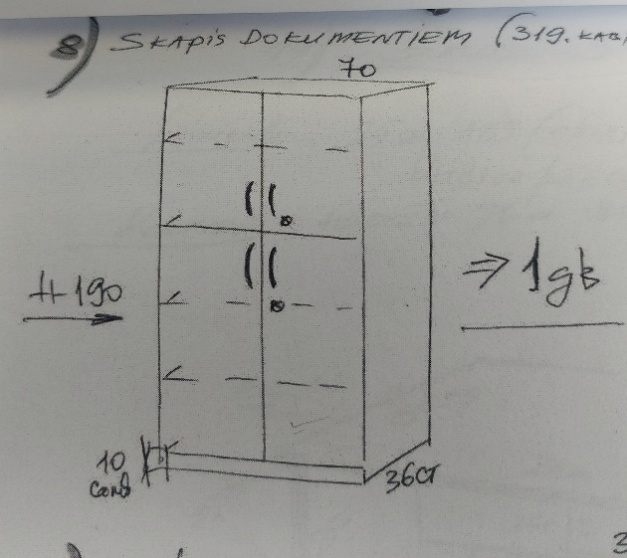 8) SKAPIS DOKUMENTIEM (319. KAB
70
H 190
⇒ 1 gb
10
36
3